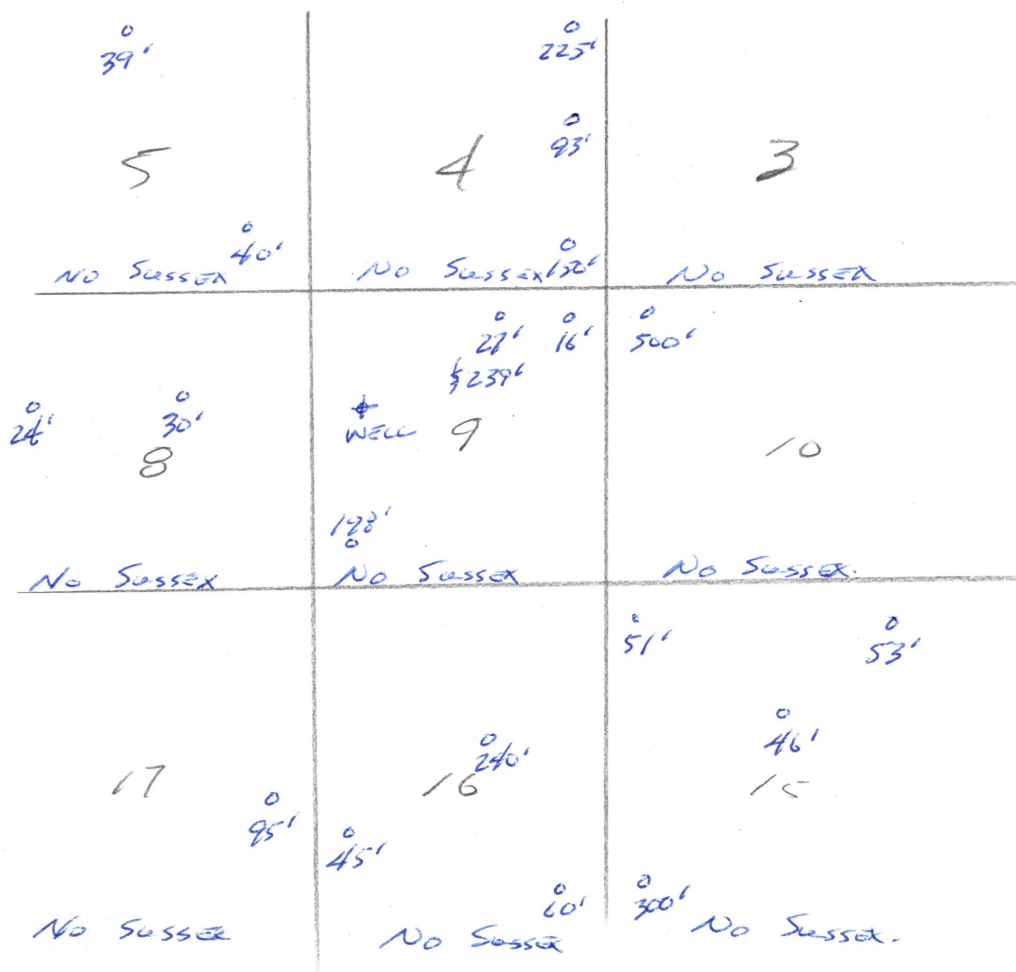 39'
5
40'
No Sussex
225'
93'
4
150'
No Sussex
3
No Sussex
24'
30'
8
No Sussex
27' 16'
& 239'
WELL 9
198'
No Sussex
500'
10
No Sussex.
17
95'
No Sussex
240'
16
45'
60'
No Sussex
51' 53'
46'
15
300'
No Sussex.